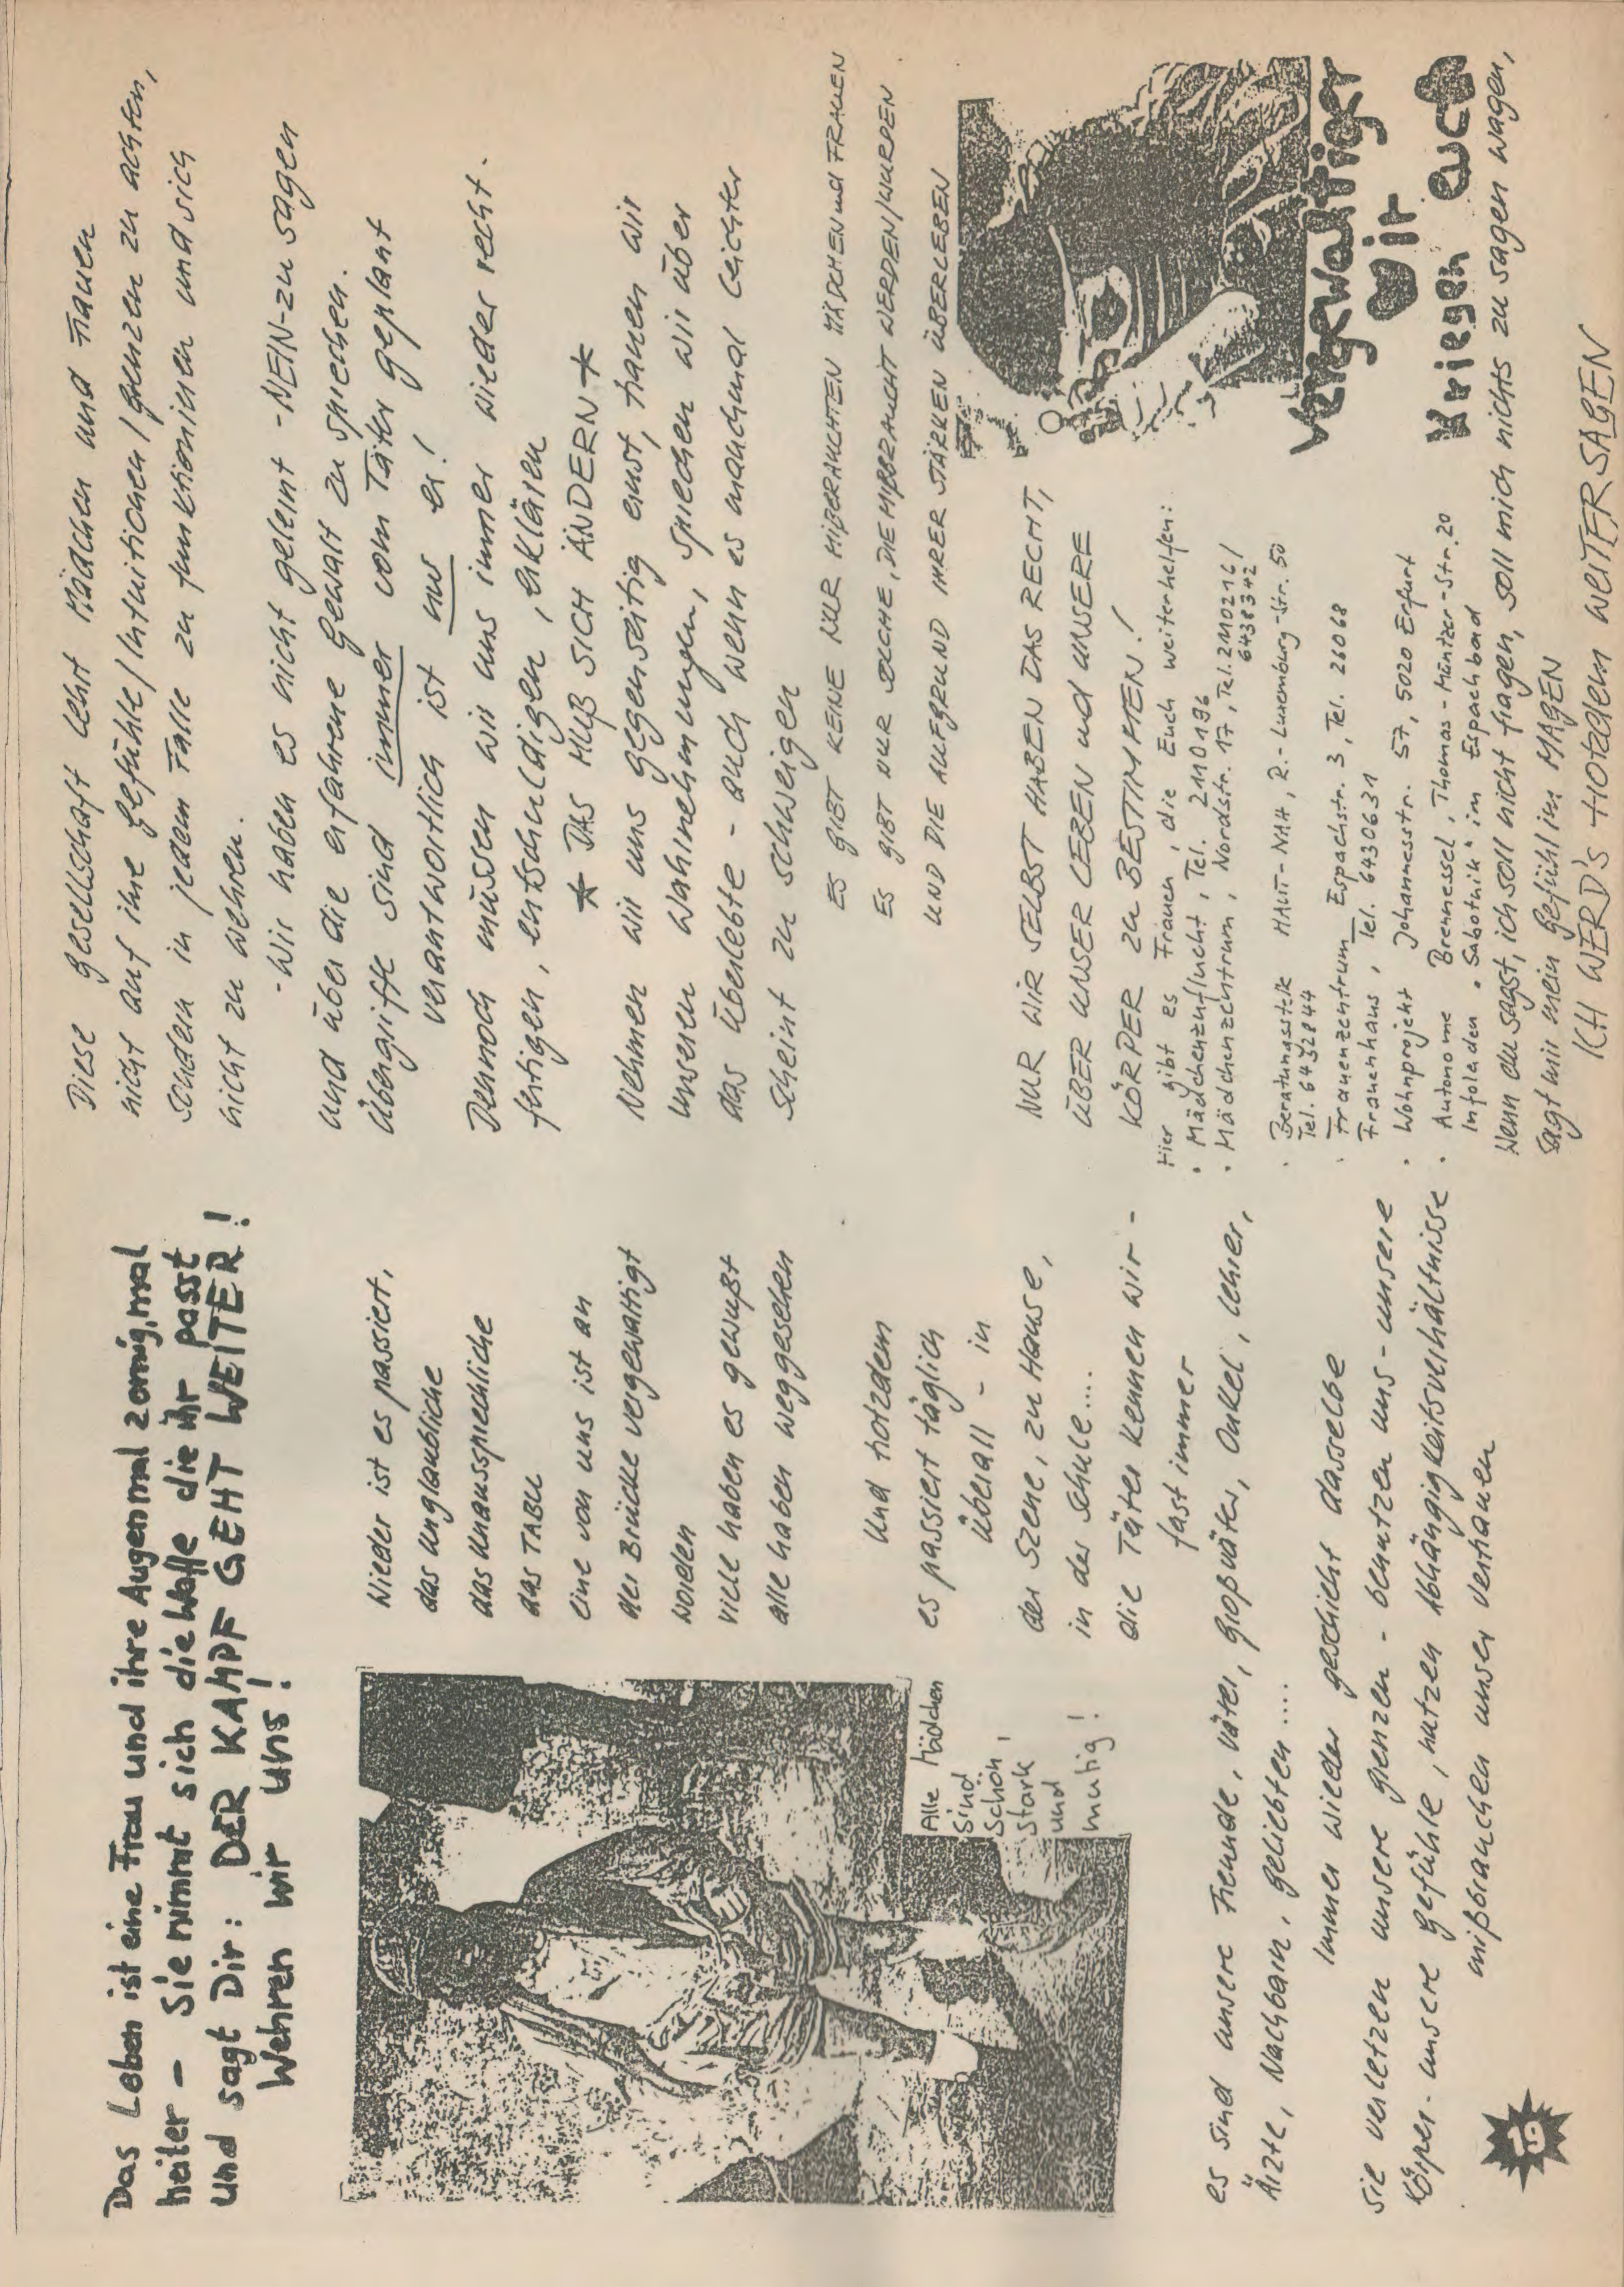 Das Leben ist eine Frau und ihre Augen mal zornig, mal
heiter – Sie nimmt sich die Waffe die ihr passt
und sagt Dir: DER KAMPF GEHT WEITER!
Wehren wir uns!
Wieder ist es passiert,
das unglaubliche
das unaussprechliche
das TABU
eine von uns ist an
der Brücke vergewaltigt
worden
viele haben es gewußt
alle haben weggesehen
Und trotzdem
es passiert täglich
überall – in
der Szene, zu Hause,
in der Schule....
die Täter kennen wir –
fast immer
Alle Mädchen
sind
schön,
stark
und
mutig!
es sind unsere Freunde, Väter, Großväter, Onkel, Lehrer,
Ärzte, Nachbarn, Geliebten....
Immer wieder geschieht dasselbe
sie verletzen unsere Grenzen – benutzen uns – unsere
Körper – unsere Gefühle, nutzen Abhängigkeitsverhältnisse
mißbrauchen unser Vertrauen
19
Diese Gesellschaft lehrt Mädchen und Frauen
nicht auf ihre Gefühle/Intuitionen/Grenzen zu achten,
sondern in jedem Falle zu funktionieren und sich
nicht zu wehren.
- Wir haben es nicht gelernt - NEIN - zu sagen
und über die erfahrene Gewalt zu sprechen.
Übergriffe sind immer vom Täter geplant
verantwortlich ist nur er!
Dennoch müssen wir uns immer wieder recht-
fertigen, entschuldigen, erklären
* DAS MUß SICH ÄNDERN *
Nehmen wir uns gegenseitig ernst, trauen wir
unseren Wahrnehmungen, sprechen wir über
das Überlebte – auch wenn es manchmal leichter
scheint zu schweigen
ES GIBT KEINE NUR MIßBRAUCHTEN MÄDCHEN und FRAUEN
ES GIBT NUR SOLCHE, DIE MIßBRAUCHT WERDEN/WURDEN
UND DIE AUFGRUND IHRER STÄRKEN ÜBERLEBEN
NUR WIR SELBST HABEN DAS RECHT,
ÜBER UNSER LEBEN und UNSERE
KÖRPER zu BESTIMMEN!
Hier gibt es Frauen, die Euch weiterhelfen:
· Mädchenzuflucht, Tel. 2110196
· Mädchenzentrum, Nordstr. 17, Tel. 2110216/
6438342
· Beratungsstelle HAUT-NAH, R.-Luxemburg-Str. 50
Tel. 6432844
· Frauenzentrum Espachstr. 3, Tel. 26068
Frauenhaus, Tel. 6430631
· Wohnprojekt Johannesstr. 57, 5020 Erfurt
· Autonome Brennessel, Thomas-Müntzer-Str. 20
Infoladen "Sabotnik" im Espachbad
Vergewaltiger
wir
kriegen euch
Wenn du sagst, ich soll nicht fragen, soll mich nichts zu sagen wagen,
sagt mir mein Gefühl im MAGEN
ICH WERD'S trotzdem WEITERSAGEN